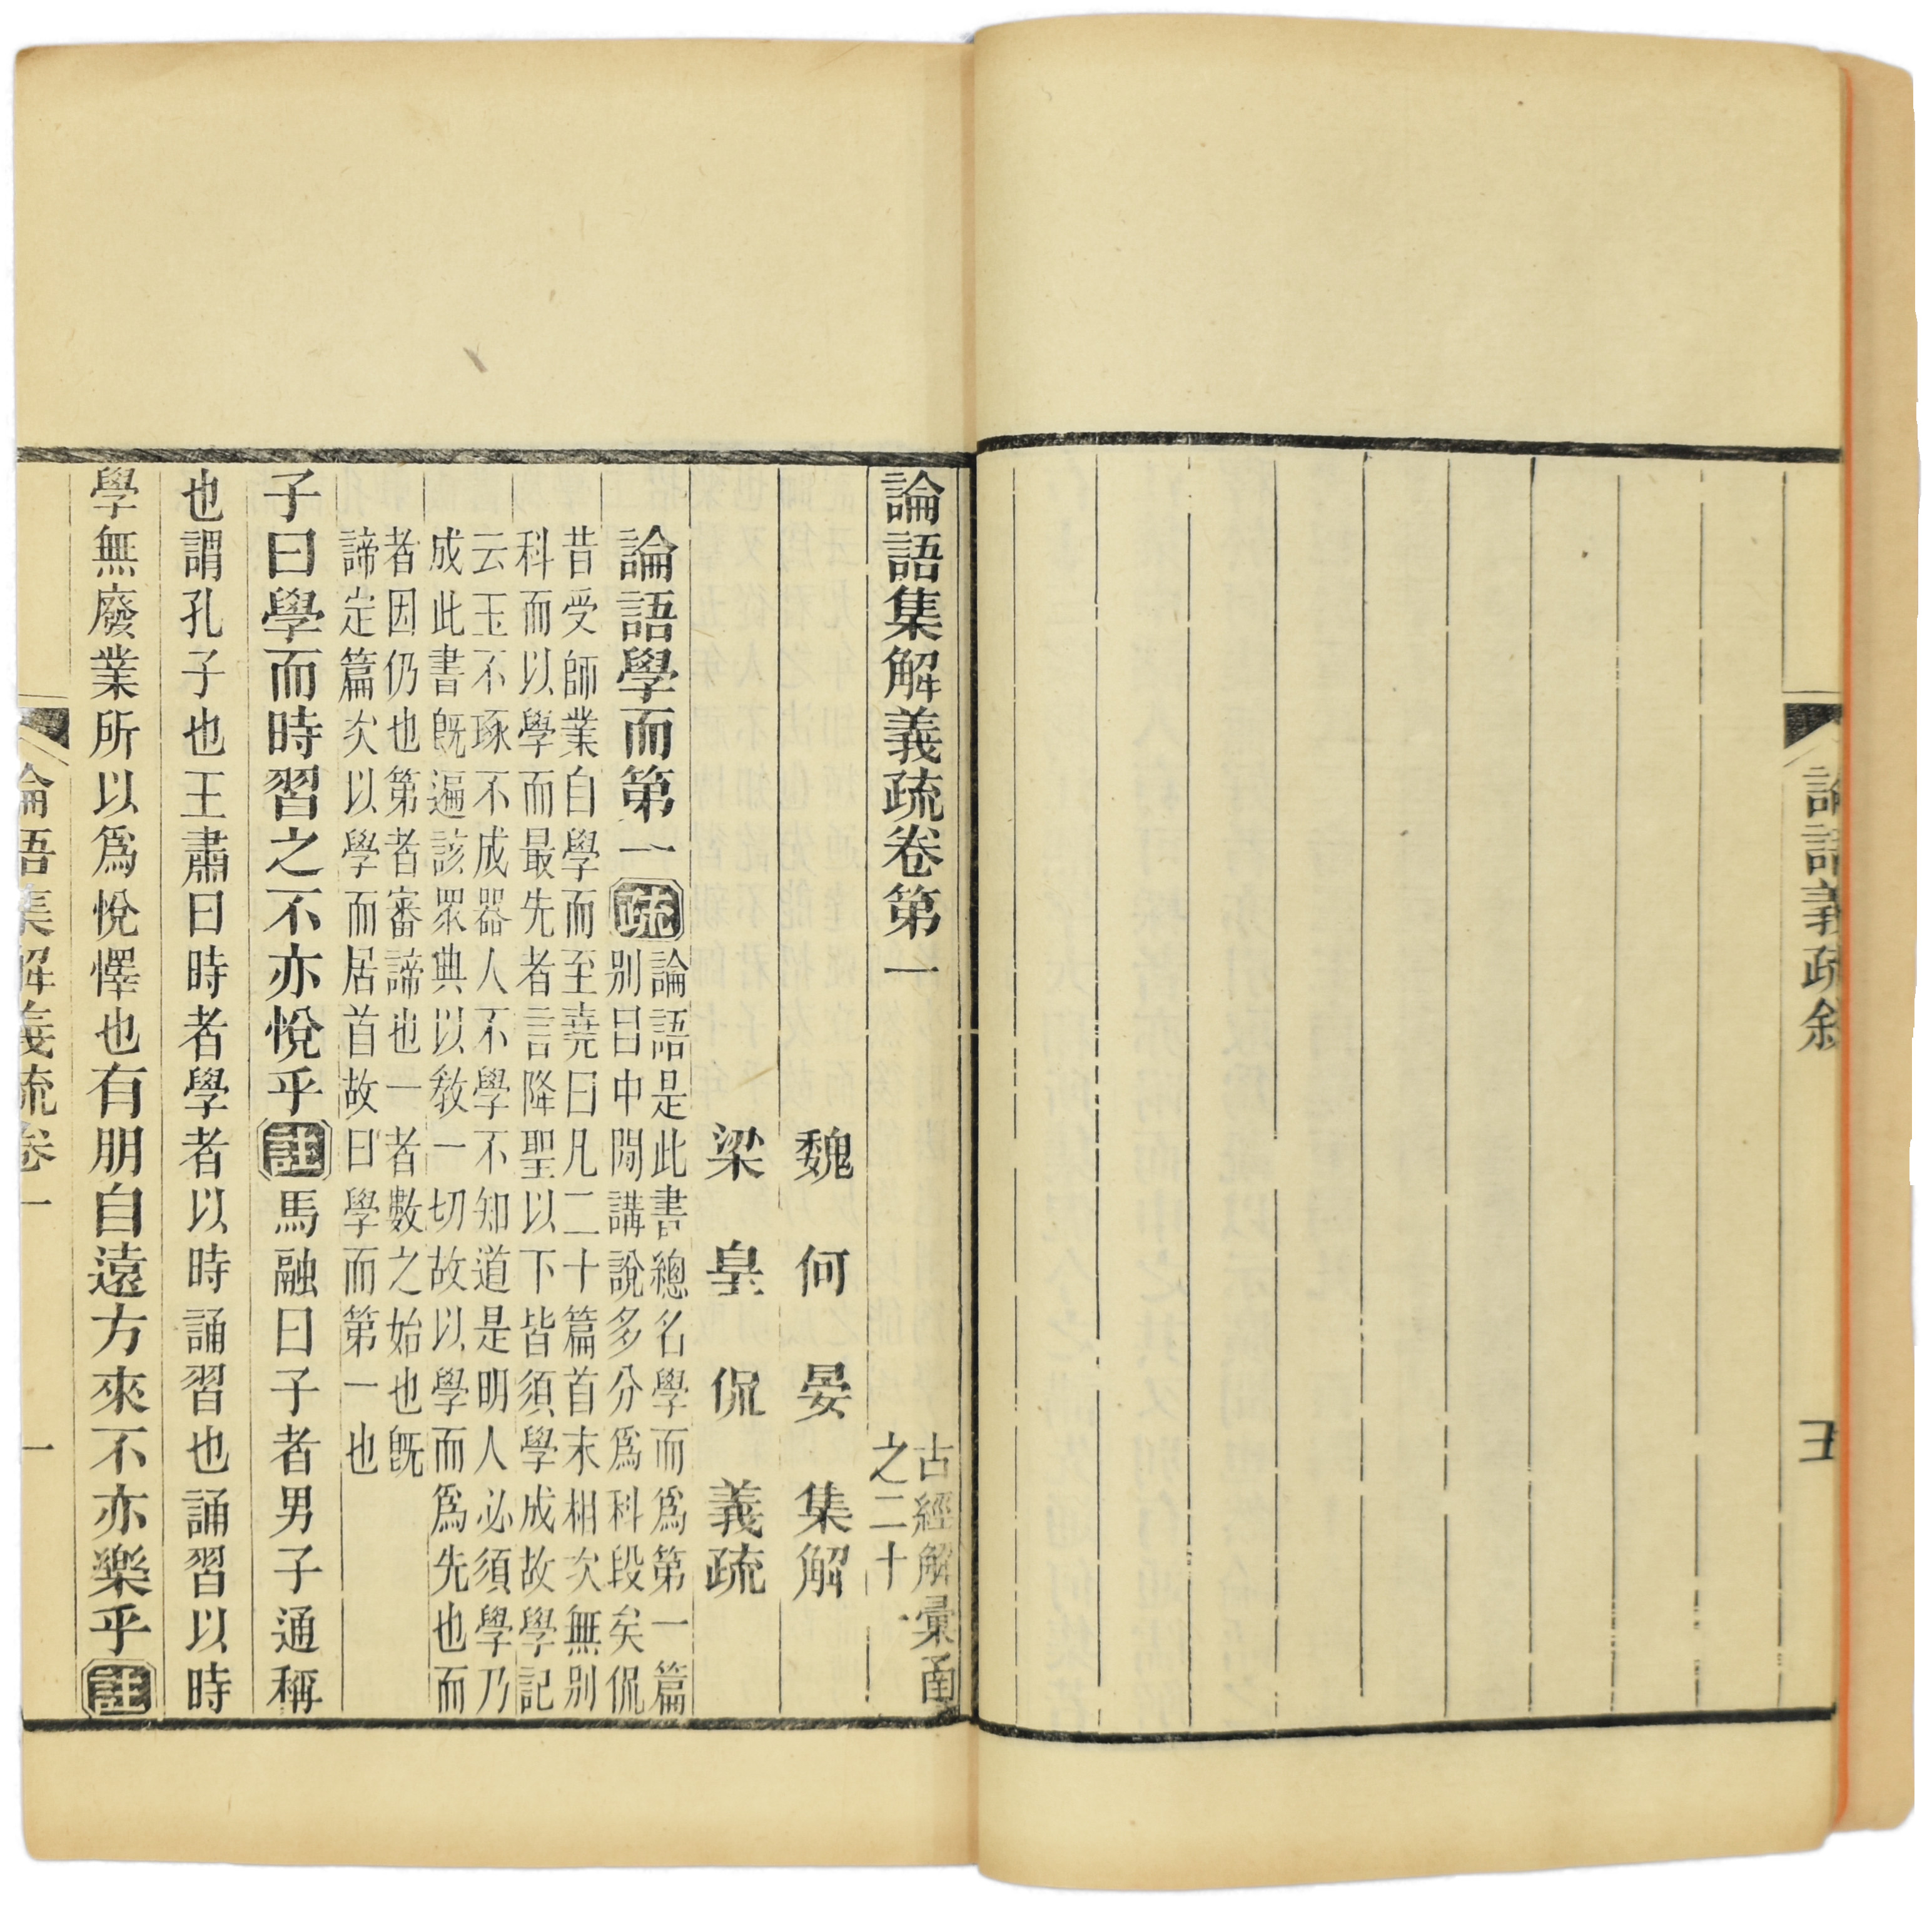 論語義疏敘
五
論語集解義疏卷第一
古經解彙函
之二十
魏何晏集解
梁皇侃義疏
論語學而第一疏論語是此書總名學而爲第一篇
別曰中閒講說多分爲科段矣侃
昔受師業自學而至堯曰凡二十篇首末相次無別
科而以學而最先者言降聖以下皆須學成故學記
云玉不琢不成器人不學不知道是明人必須學乃
成此書旣遍該眾典以敎一切故以學而爲先也而
者因仍也第者審諦也一者數之始也旣
諦定篇次以學而居首故曰學而第一也
子曰學而時習之不亦悅乎註馬融曰子者男子通稱
也謂孔子也王肅曰時者學者以時誦習也誦習以時
學無廢業所以爲悅懌也有朋自遠方來不亦樂乎註
論語集解義疏卷一
一